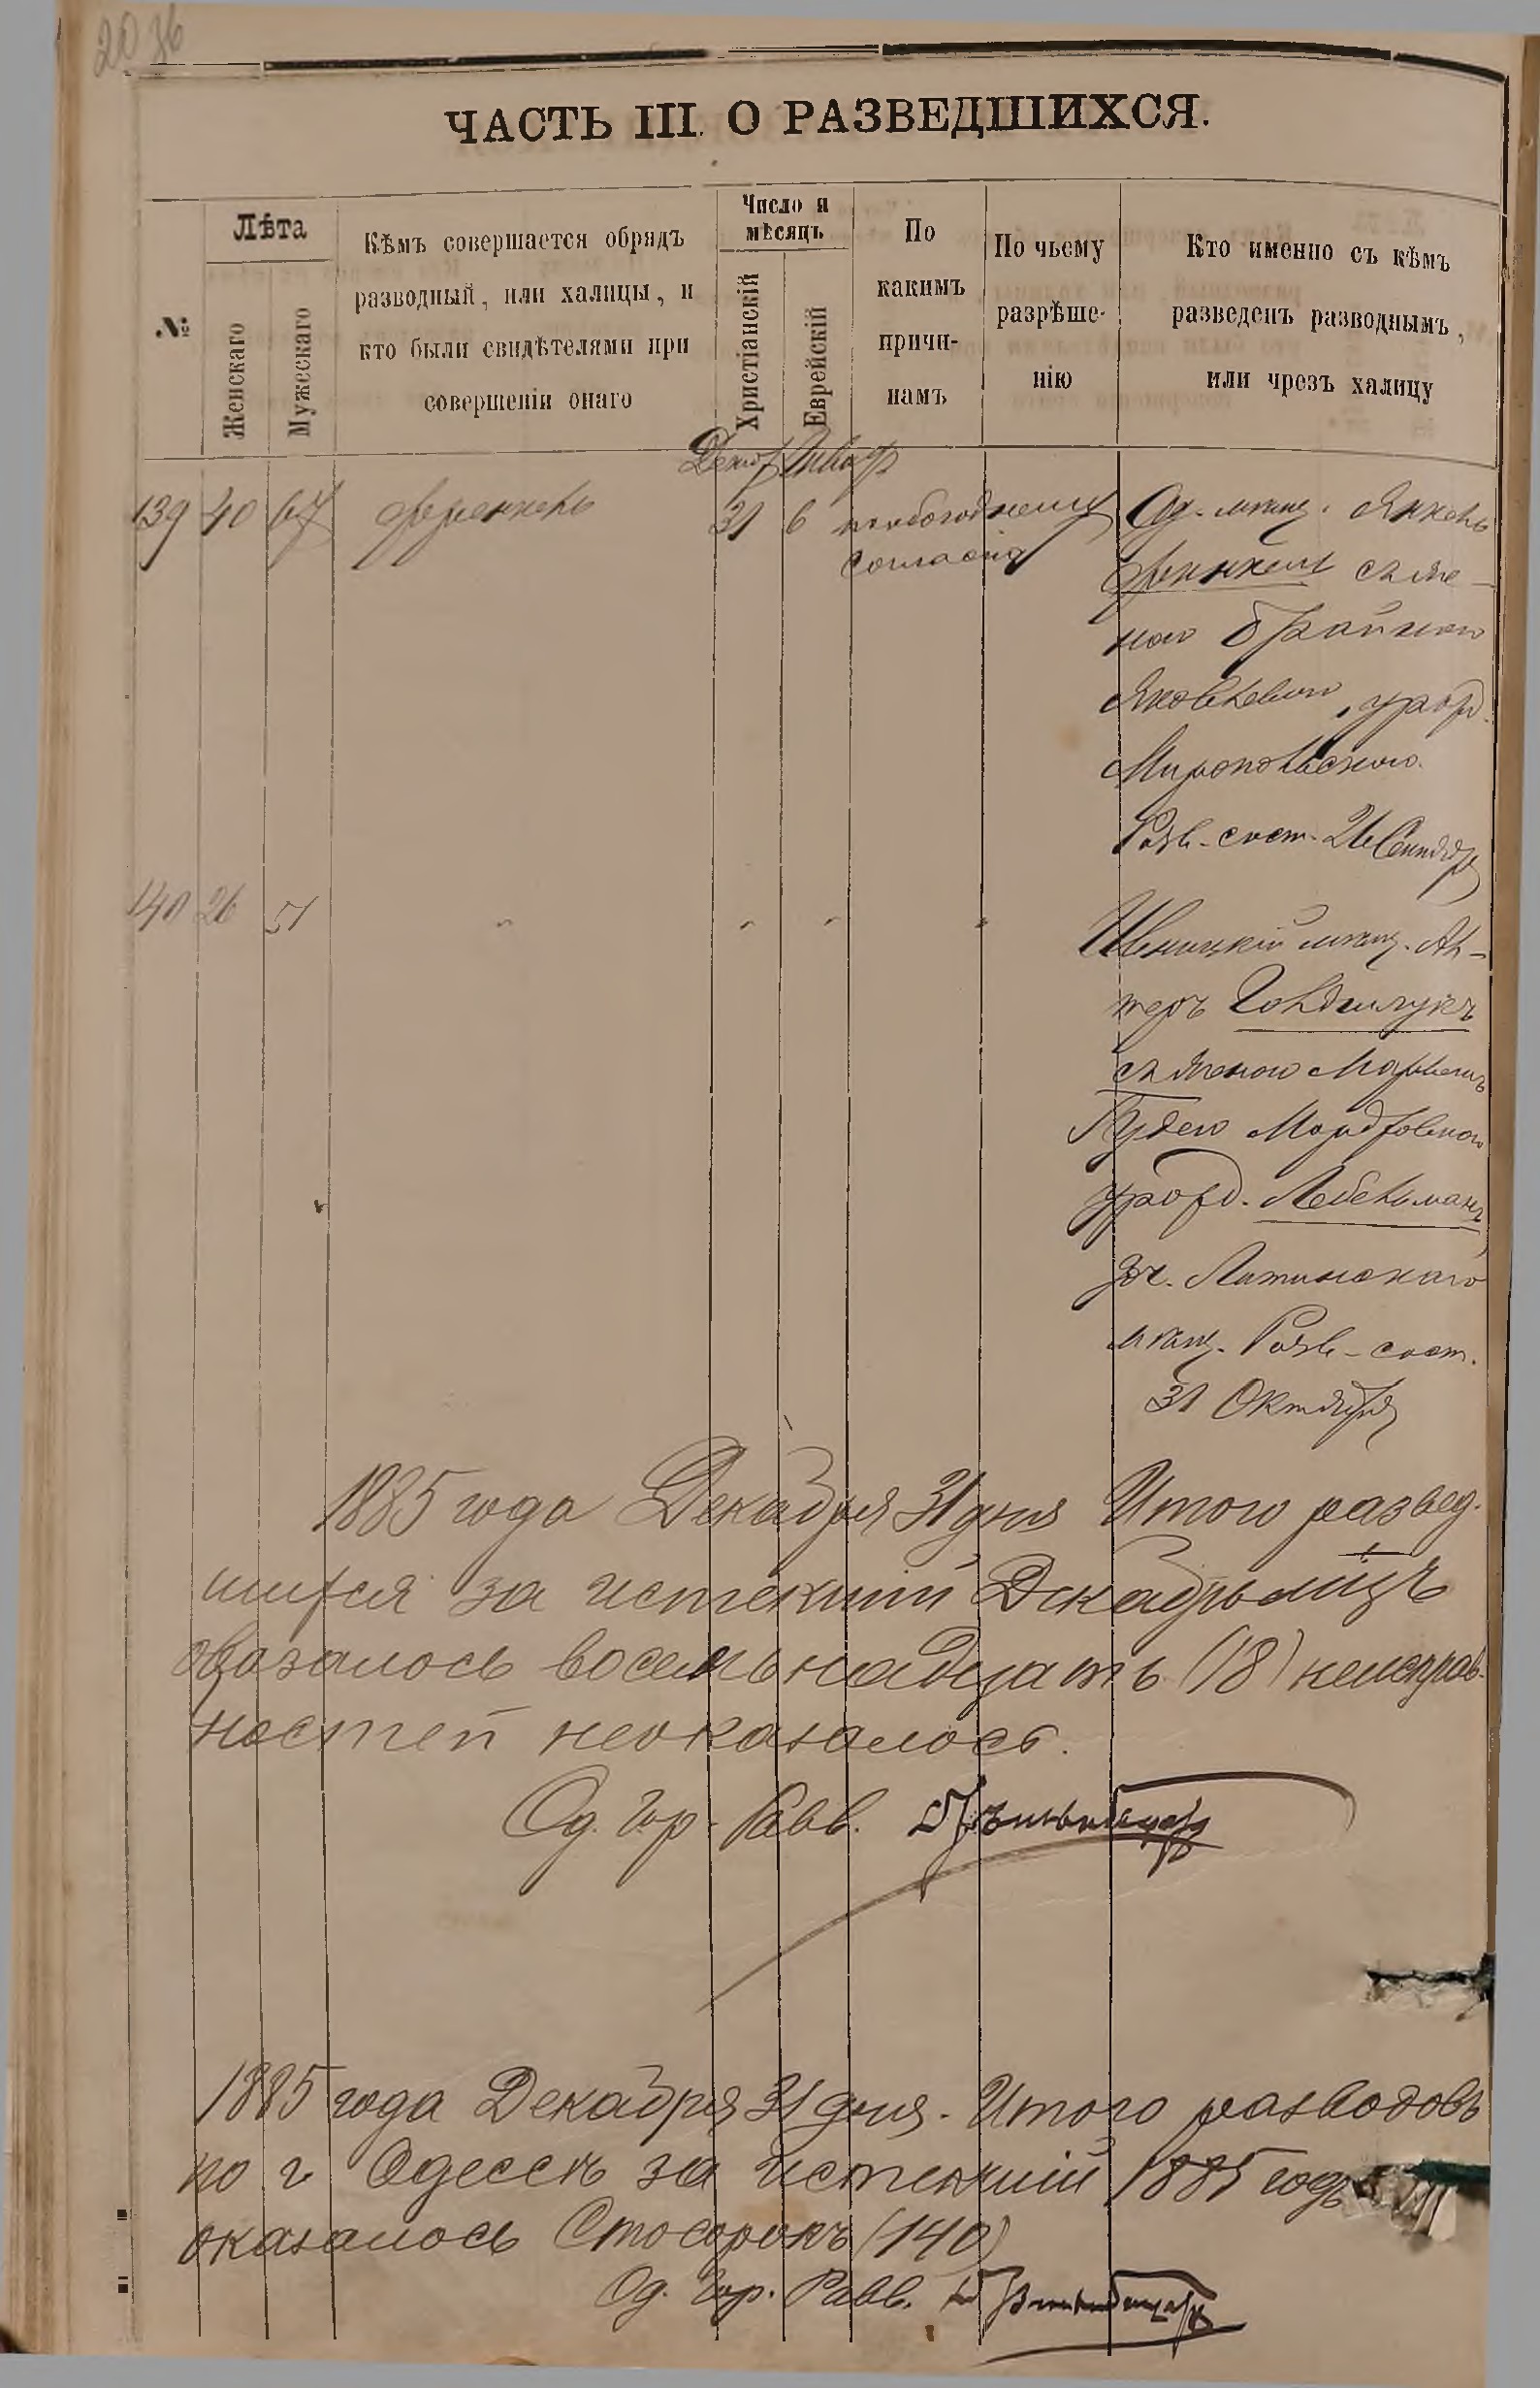 2036
ЧАСТЬ III. О РАЗВЕДШИХСЯ.
№
Лѣта
Женскаго
Мужескаго
Кѣмъ совершается обрядъ
разводный, или халицы, и
кто были свидѣтелями при
совершеніи онаго
Число и
мѣсяцъ
Христіанскій
Еврейскій
По
какимъ
причи-
намъ
По чьему
разрѣше-
нію
Кто именно съ кѣмъ
разведенъ разводнымъ,
или чрезъ халицу
139 40 67 31 6
согласію
Од. мѣщ. Янкель
Френкель съ же-
ною Брайною
Яковлевою, урожд.
Миропольскою.
Разв. сост. 26 Сентября
140 26 51 " " " "
мѣщ. Ал-
теръ Гольдшмукъ
съ женою
Мордковною
урожд. Лебельманъ,
доч. Литинскаго
мѣщ. Разв. сост.
31 Октября
1885 года Декабря 31 дня Итого развед-
шихся за истекшій Декабрь мѣцъ
оказалось восемьнадцать (18) неисправ-
ностей неоказалось.
Од. Гор. Равв.
1885 года Декабря 31 дня. Итого разводовъ
по г. Одессѣ за истекшій 1885 годъ
оказалось Стосорокъ (140)
Од. Гор. Равв.